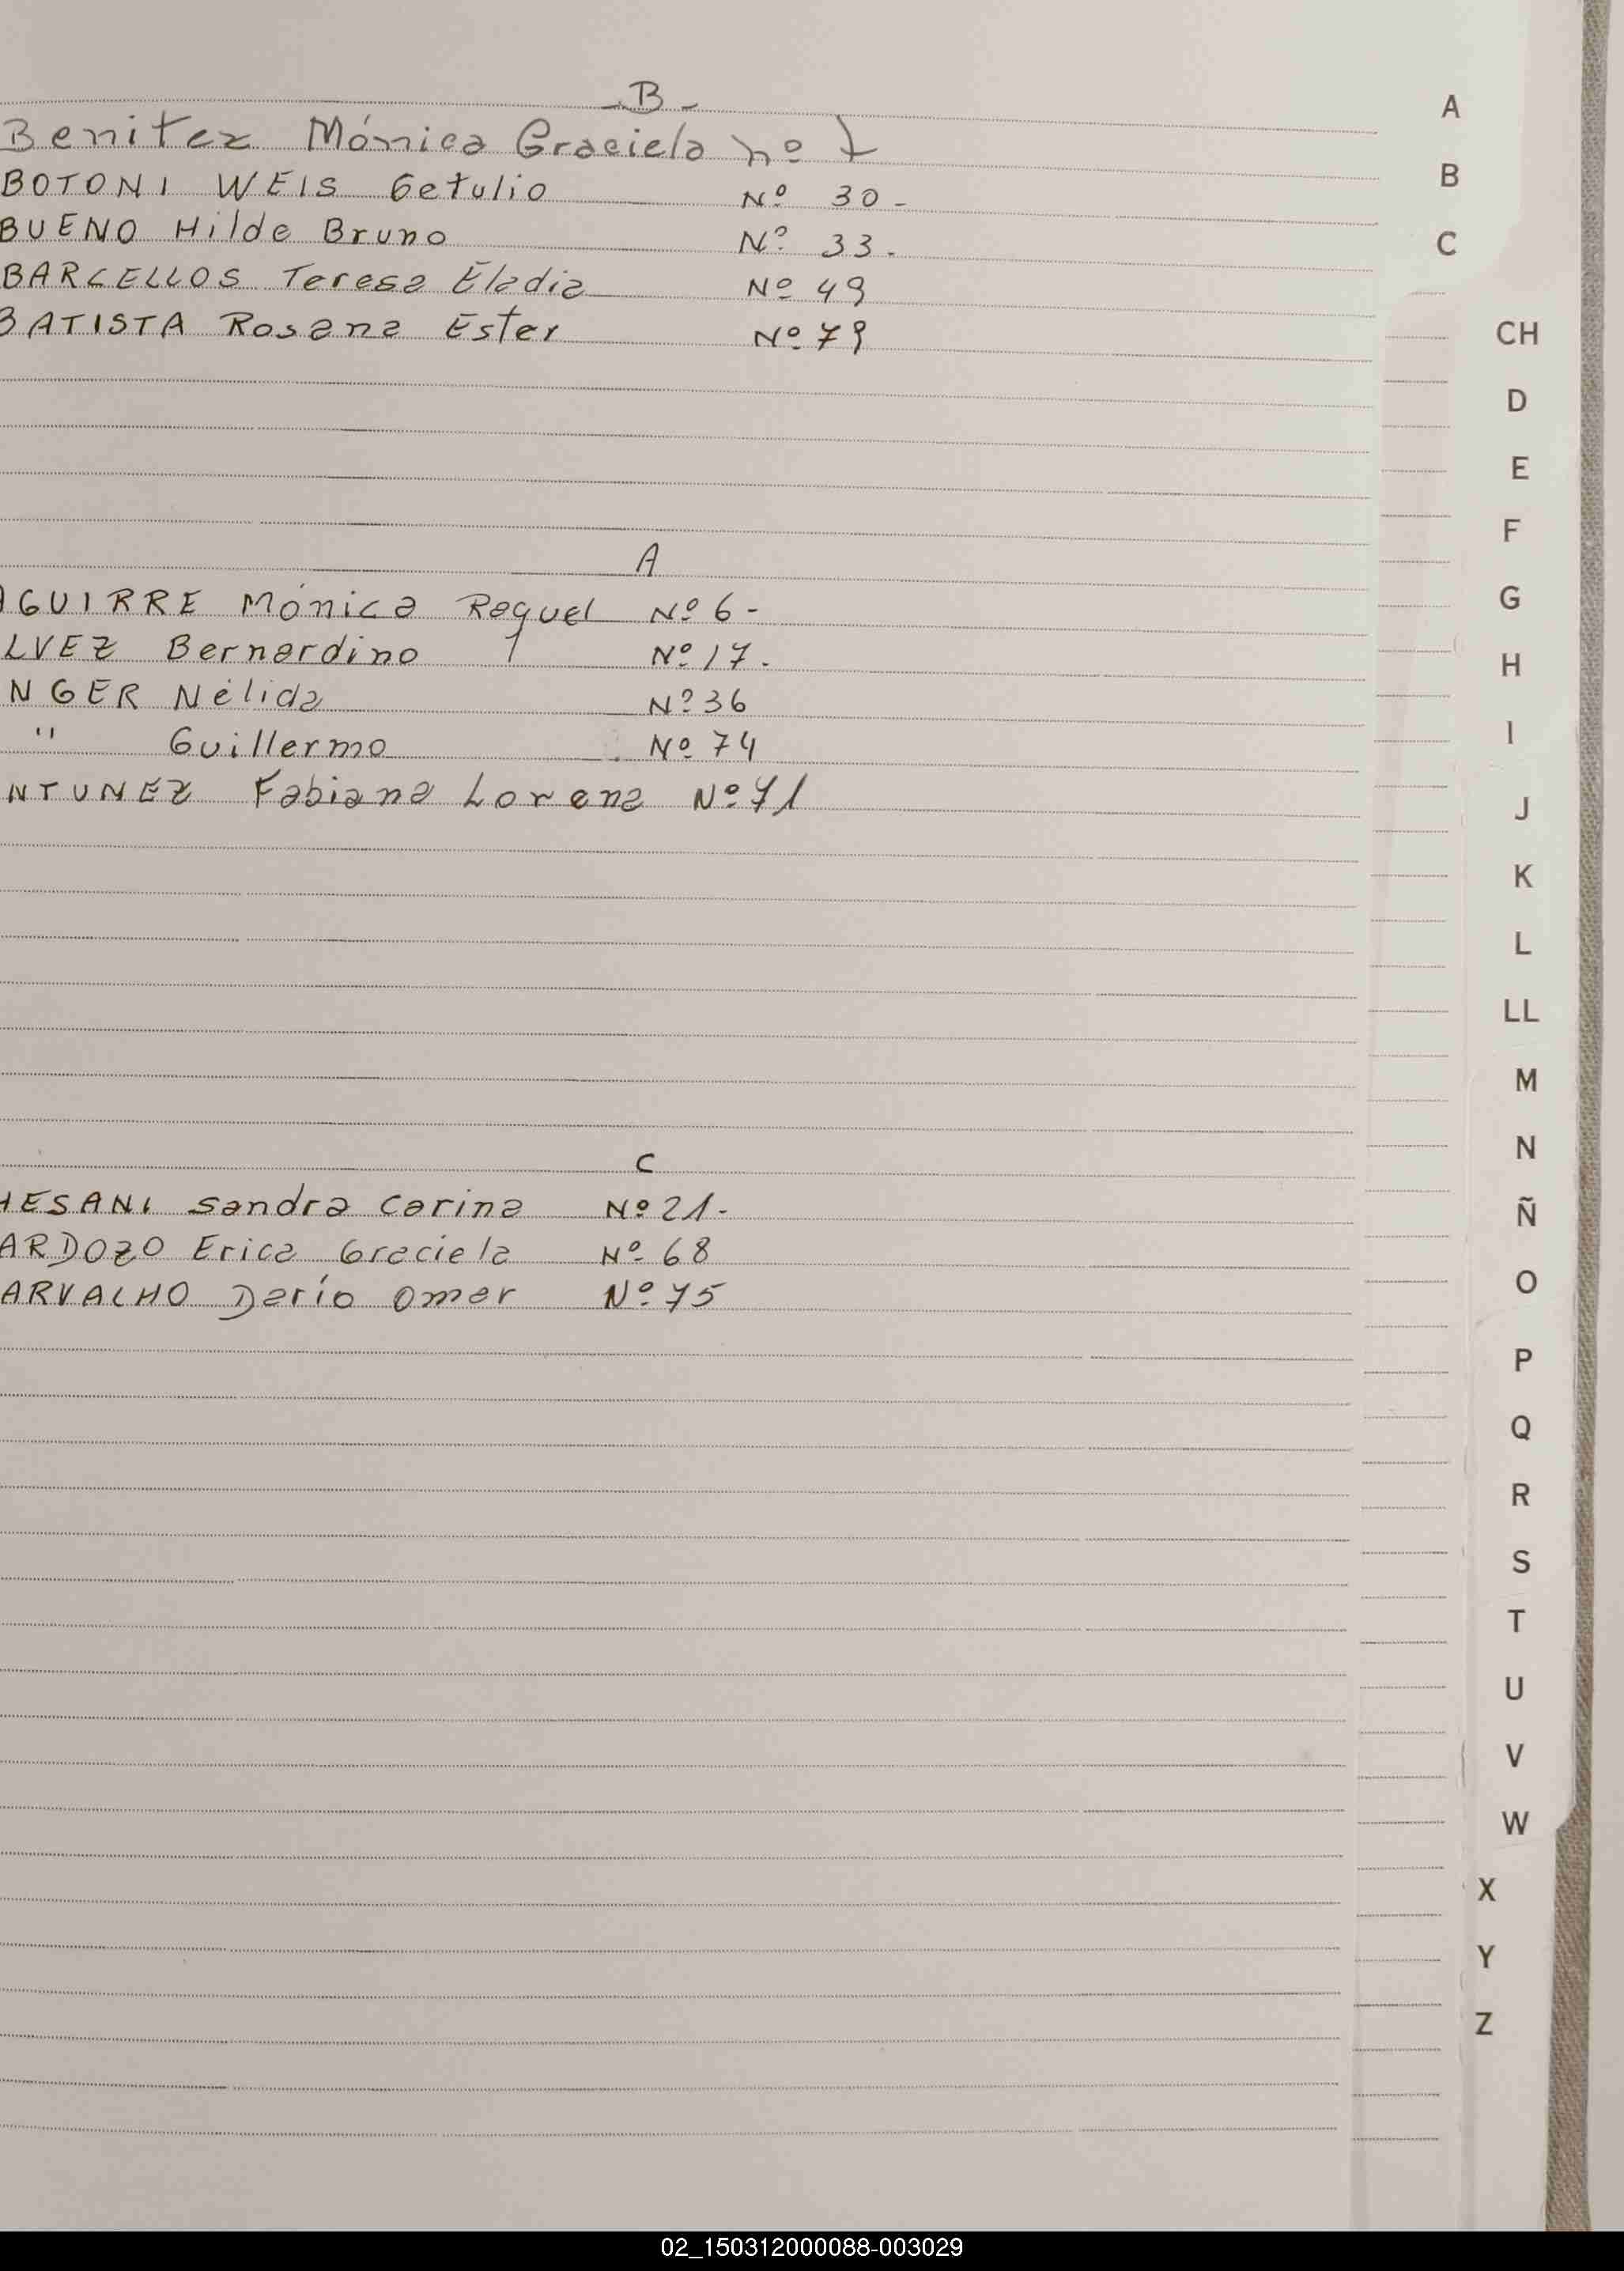 -B-
Benitez Mónica Graciela nº 1
BOTONI WEIS Getulio Nº 30-
BUENO Hilda Bruno Nº 33.
BARCELLOS Teresa Eladia Nº 49
BATISTA Rosana Ester Nº 79
A
AGUIRRE Mónica Raquel Nº 6-
LVEZ Bernardino Nº 17.
NGER Nélida Nº 36
" Guillermo Nº 74
NTUNEZ Fabiana Lorena Nº 71
C
HESANI Sandra Carina Nº 21-
ARDOZO Erica Graciela Nº 68
ARVALHO Darío Omar Nº 75
A
B
C
CH
D
E
F
G
H
I
J
K
L
LL
M
N
Ñ
O
P
Q
R
S
T
U
V
W
X
Y
Z
02_150312000088-003029